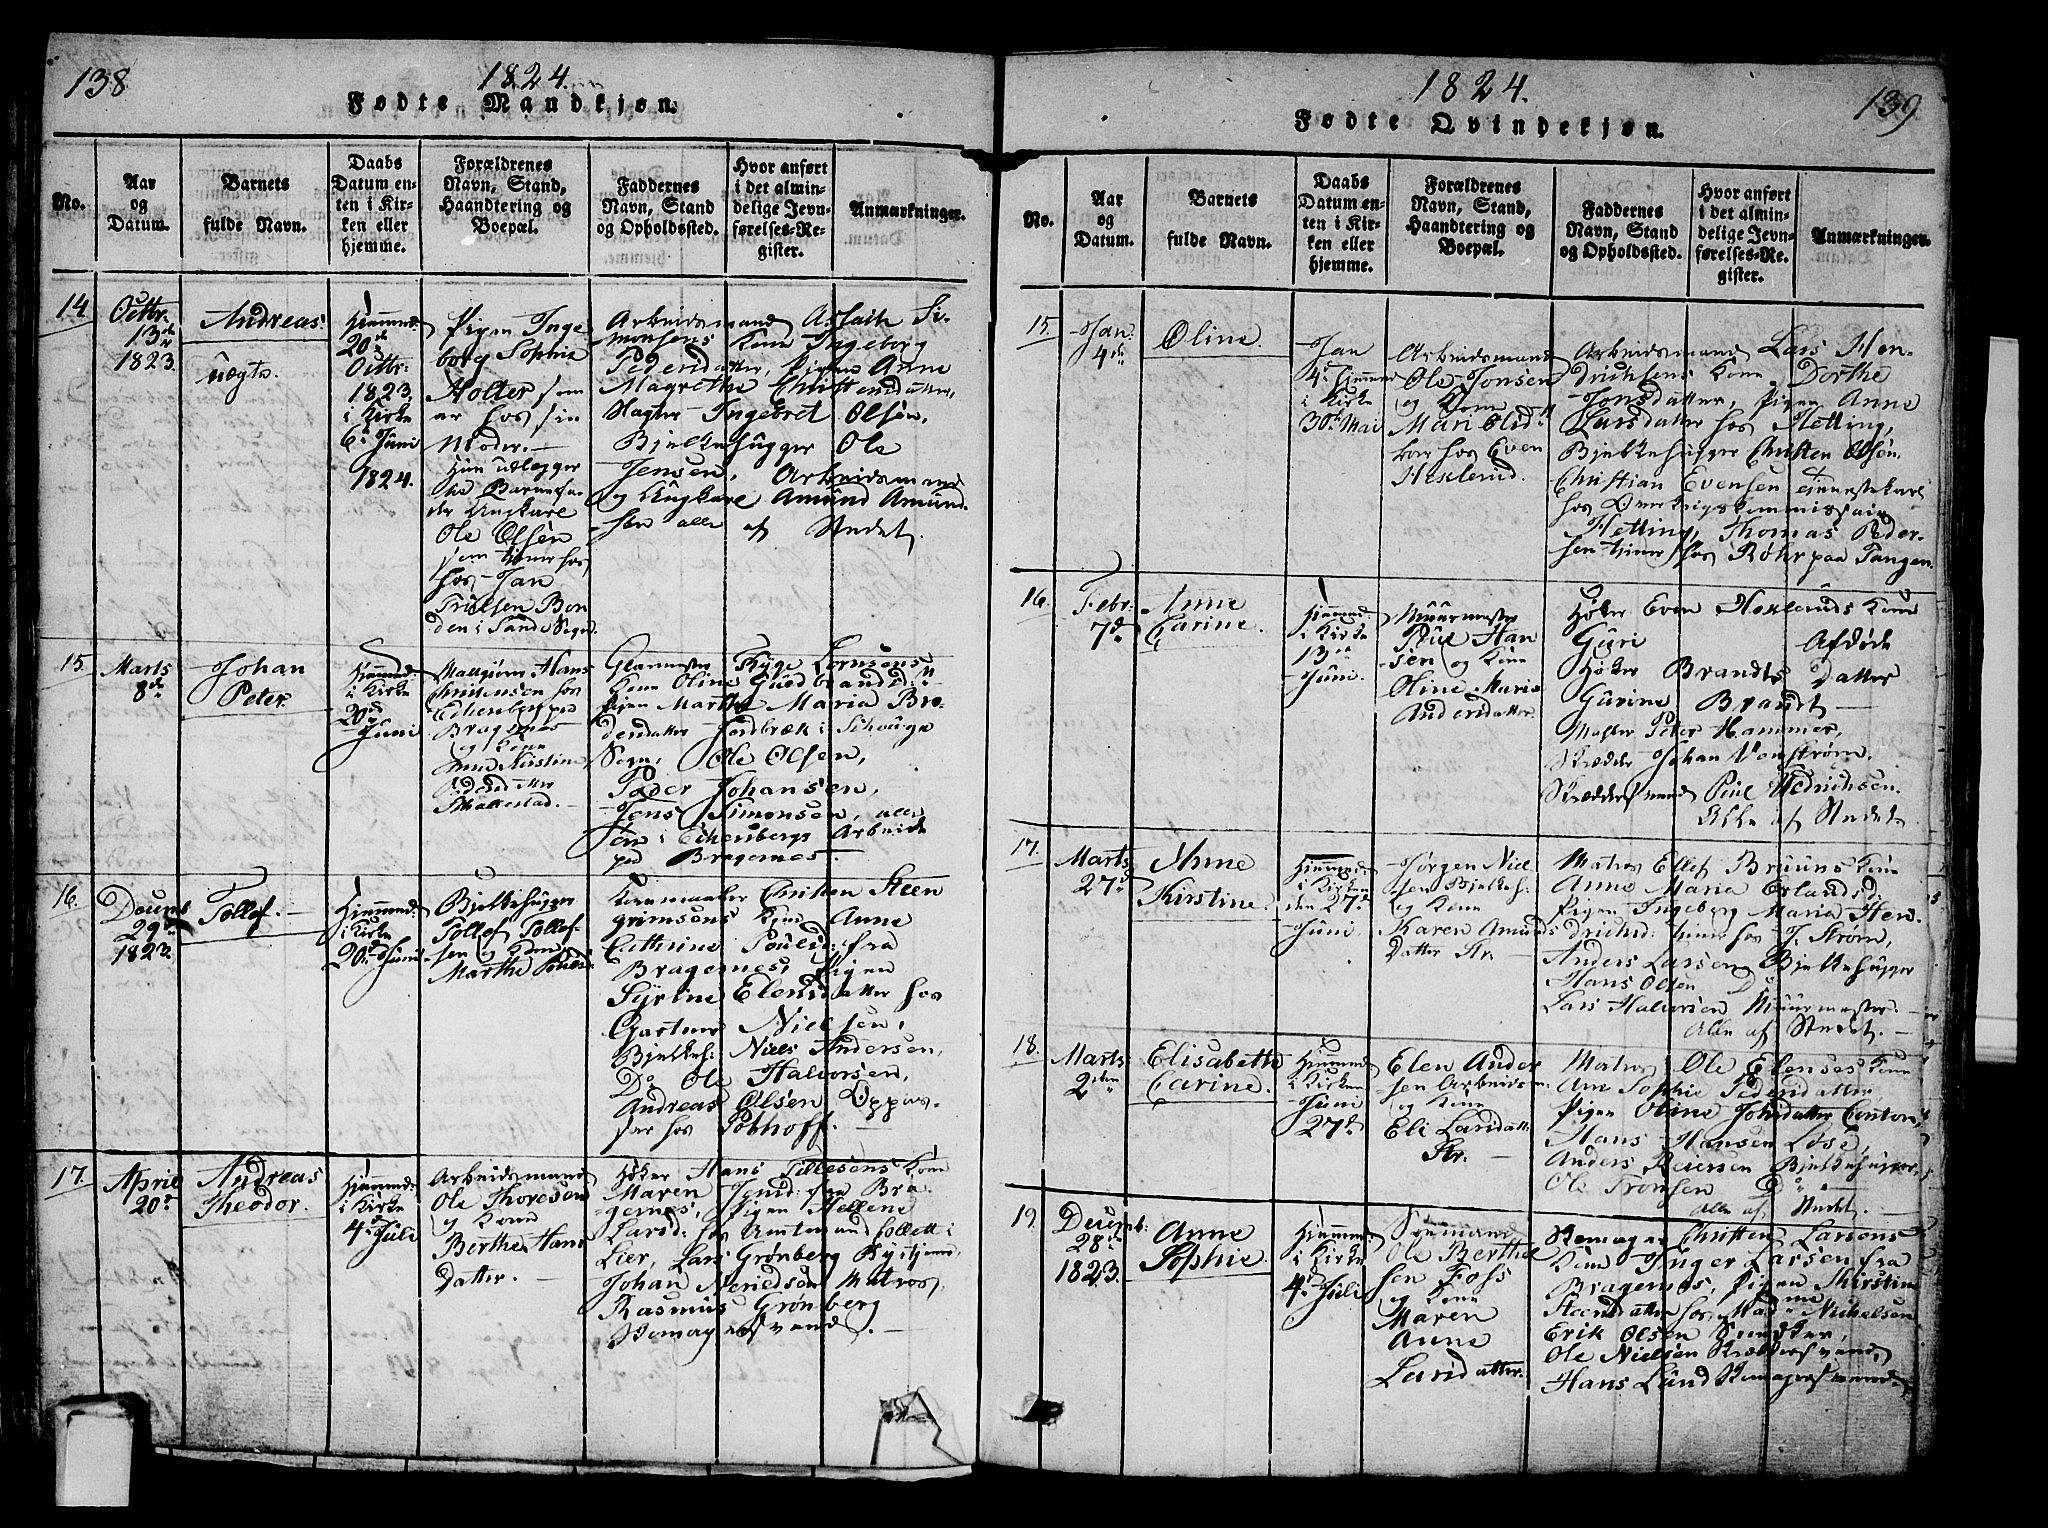 138
1824.
Fødte Mandkjøn.
No.
Aar
og
Datum.
Barnets
fulde Navn.
Daabs
Datum en-
ten i Kir-
ken eller
hjemme.
Forældrenes
Navn, Stand,
Haandtering og
Boepæl.
Faddernes
Navn, Stand
og Opholdssted.
Hvor anført
i det almin-
delige Jevn-
førelses-Re-
gister.
Anmærkninger.
14.
Octbr.
13de
1823.
Andreas.
Uægte.
Hjemmed:
20de
Octbr:
1823.
i Kirke
6te Juni
1824.
Pigen Inge
borg Sophie
Holter som
er hos sin
Moder.
Hun udlægger
til Barnefa-
der Ungkarl
Ole Olsen
som tjener hos
hos Jan
Truelsen Bon
den i Sande Sogn.
Arbeidsmand Aslach Si-
monsens Kone Ingeborg
Pedersdatter, Pigen Anne
Magrethe Christensdatter,
Ingebret Olsen,
Bjelkehugger Ole
Jensen, Arbeidsmand
og Ungkarl Amund Amund-
sen alle af Stedet.
15.
Marts
8de
Johan
Peter.
Hjemmed:
i Kirke
20de
Juni
Hans
Christensen hos
Eckenberg paa
Bragernes
og Kone
Anne Kirstine
Pedersdatter
Glarmester Thyge Lornsens
Kone Oline Guldbrandsd:
Pigen Marthe Maria Bre-
densdatter Fordbræk i Schouge
Sogn, Ole Olsen,
Peder Johansen,
Jens Simonsen, alle
tjen i Eckenbergs Arbeide
paa Bragernes.
16.
Decembr
29de
1823.
Tollef.
Hjemmed:
i Kirke
20de Juni
Bjelkehugger
Tollef Tollef-
sen og Kone
Marthe Poulsd:
Kornmaaler Christen Steen
grimsens Kone Anne
Cathrine Poulsd: fra
Bragernes, Pigen
Syrine Elensdatter hos
Gartner Nielsen,
Bjelkeh: Niels Andersen,
Do Ole Halvorsen,
Andreas Olsen Oppas-
ser hos Pobhoff.
17.
April
20de
Andreas
Theodor.
Hjemmed:
i Kirke
4de Juli
Arbeidsmand
Ole Thoresen
og Kone
Berthe Hans
Datter.
Høker Hans Tillesens Kone
Maren Jensd: fra Bra
gernes, Pigen Hellene
Larsd: hos Amtmand Collett i
Lier, Lars Grønberg Bytjener,
Johan Nerichsen Matros,
Rasmus Grønberg
Skomagersvend.
1824.
139
Fødte Qvindekjøn.
No.
Aar
og
Datum.
Barnets
fulde Navn.
Daabs
Datum en-
ten i Kir-
ken eller
hjemme.
Forældrenes
Navn, Stand,
Haandtering og
Boepæl.
Faddernes
Navn, Stand
og Opholdssted.
Hvor anført
i det almin-
delige Jevn-
førelses-Re-
gister.
Anmærkninger.
15.
Jan.
4de
Oline.
Jan
4de Hjemmed
i Kirke
30te Mai
Arbeidsmand
Ole Jonsen
og Kone
Mari Olsd:
boer hos Even
Hexlerud.
Arbeidsmand Lars Hen-
drichsens Kone Dorthe
Jonsdatter, Pigen Anne
Larsdatter hos Hetting,
Bjelkehugger Christen Olsen
Christian Evensen tjenestekarl
hos Overkrigskommissair
Hetting, Thomas Peder-
sen tjener hos Røhr paa Tangen.
16.
Febr:
7de
Anne
Carine.
Hjemmed:
i Kirke
13de
Juni.
Muurmester
Poul Han
sen og Kone
Oline Marie
Andersdatter.
Høker Even Hexleruds Kone
Guri Afdøde
Høker Brandts Datter
Gurine Brandt
Matros Peter Hammer,
Skrædder Johan Venstrøm.
Skræddersvend Poul Hedrichsen.
Alle af Stedet.
17.
Marts
27de
Anne
Kirstine.
Hjemmed:
i Kirken
den 27de
Juni.
Jørgen Niel
sen Bjelkeh:
og Kone
Karen Amunds
Datter Str.
Matros Ellef Bruuns Kone
Anne Maria Erlandsd:
Pigen Ingeborg Maria Hen-
drichsd: tjener hos J. Strøm,
Anders Larsen Bjelkehugger
Hans Olsen Do
Lars Halvorsen Muurmester.
Alle af Stedet.
18.
Marts
2den
Elisabeth
Carine.
Hjemmed:
i Kirken
Juni
27de
Elen Ander
sen Arbeidsm:
og Kone
Eli Larsdatt:
Str.
Matros Ole Elenses Kone
Ane Sophie Pedersdatter,
Pigen Oline Johsdatter
Hans Hansen Lose,
Anders Reiersen Bjelkehugger,
Ole Tronsen Do
Alle af Stedet.
19.
Decembr:
28de
1823.
Anne
Sophie.
Hjemmed:
i Kirke
4de Juli
Sømand
Ole Berthel
sen Foss
og Kone
Maren
Anne
Larsdatter.
Skomager Christen Larsens
Kone Inger Larsen fra
Bragernes, Pigen Kirstine
Steensdatter hos Mad: Michelsen
Erik Olsen Snedker,
Ole Nielsen Skræddersvend,
Hans Lund Skomagersvend.